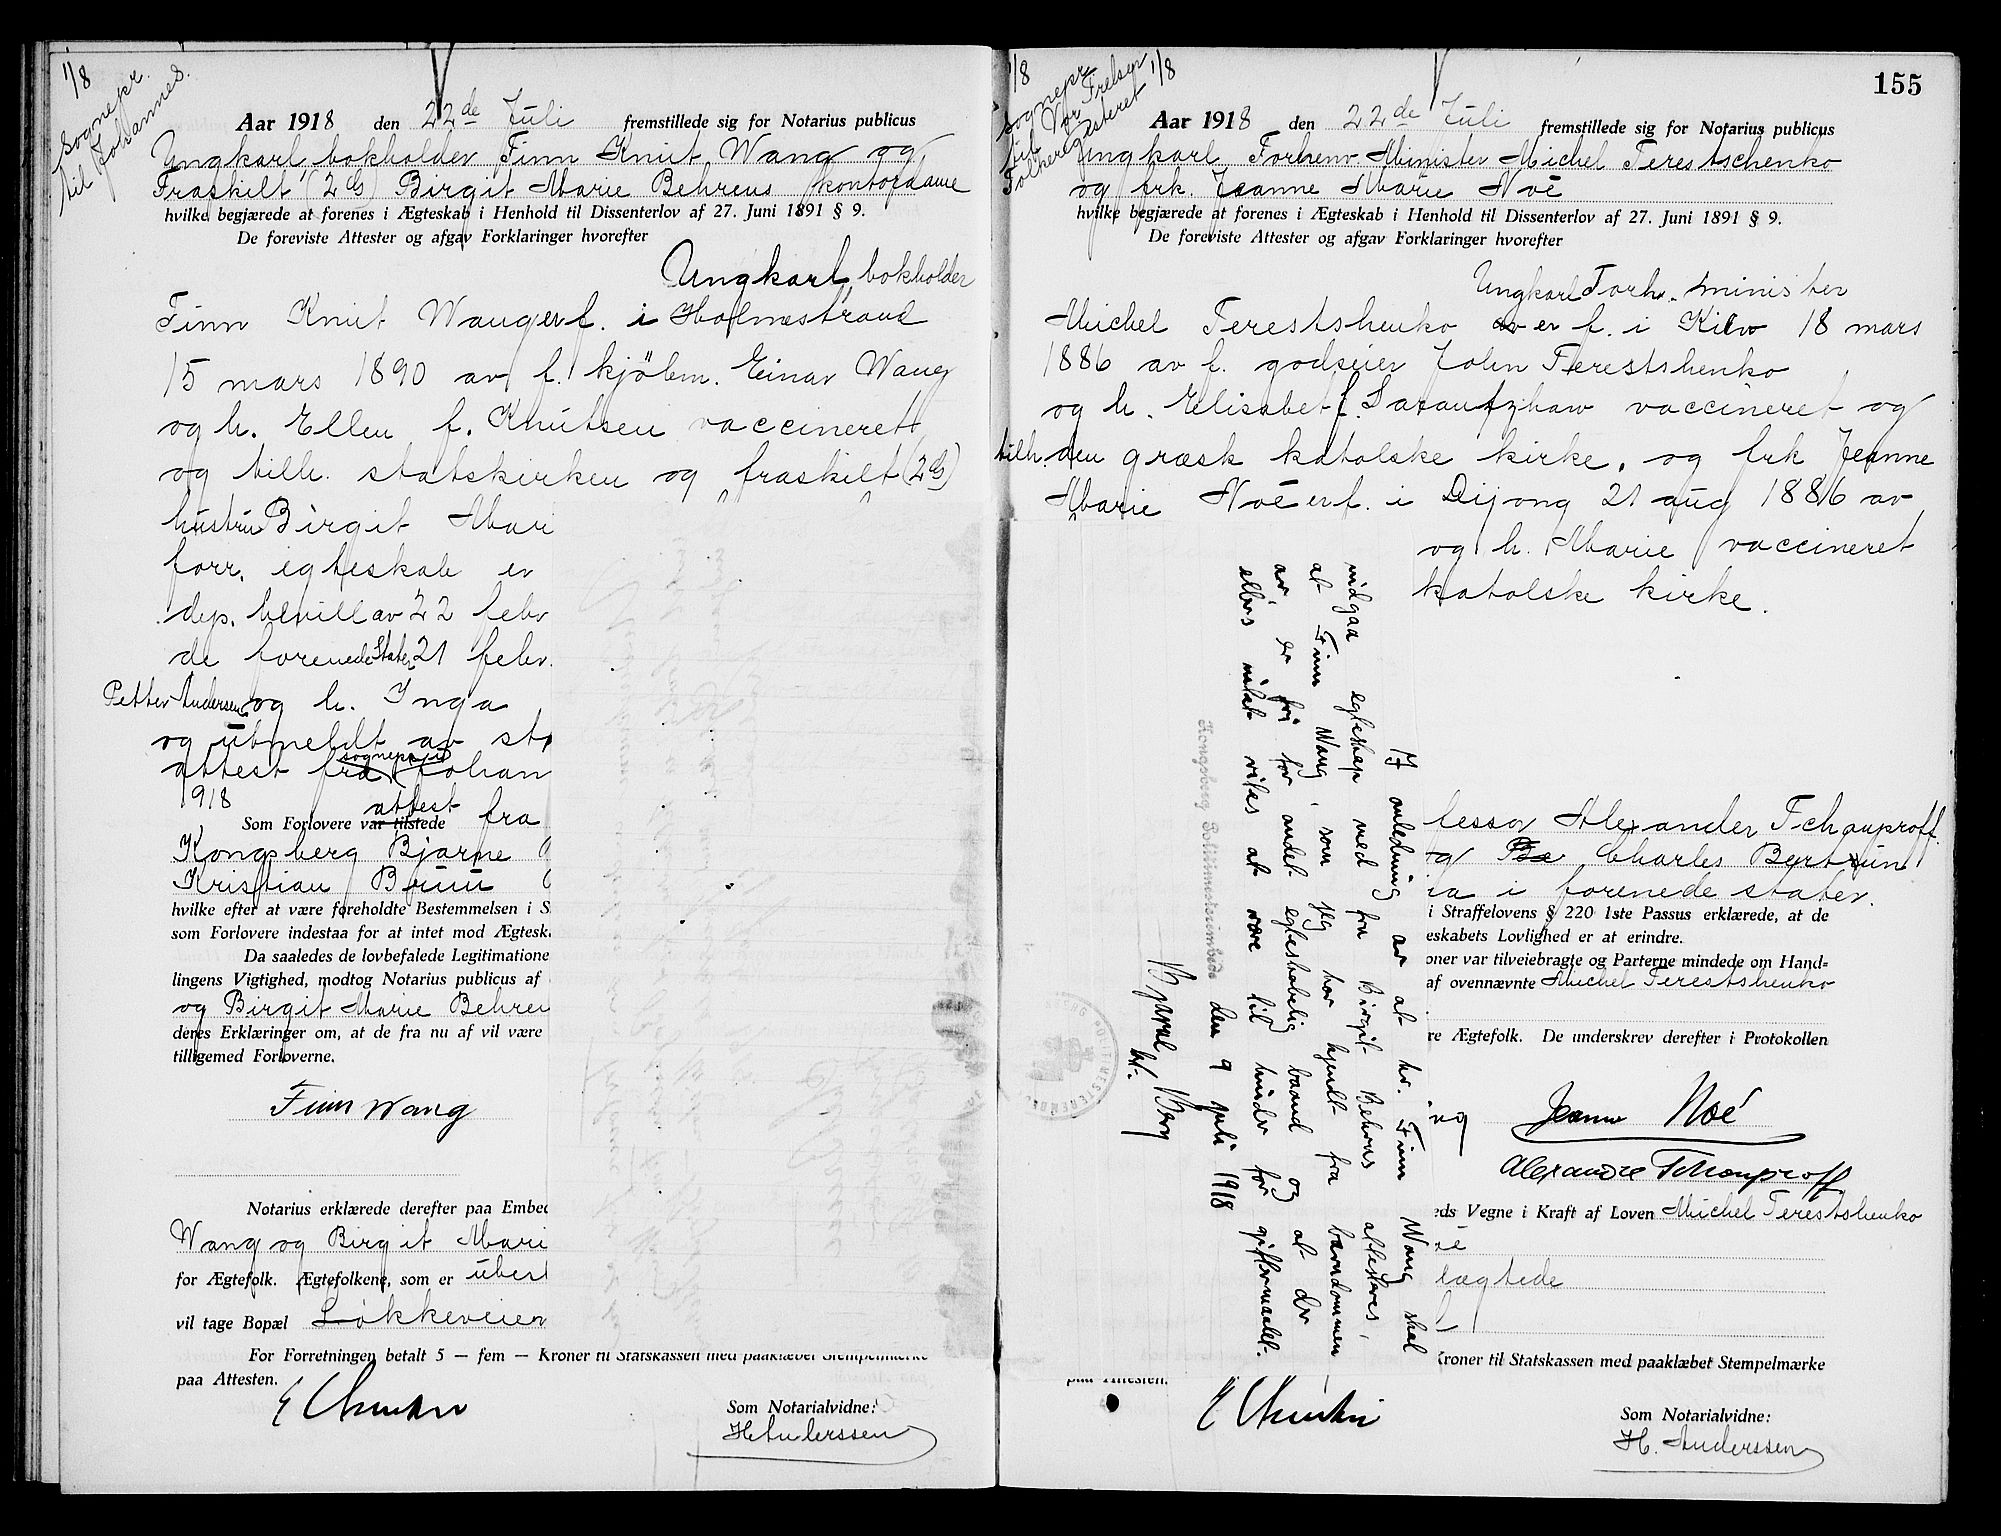 1/8
Sognepr.
til Johannes.
Aar 1918 den 22de Juli fremstillede sig for Notarius publicus
Ungkarl, bokholder Finn Knut Wang og
Fraskilt (2 G) Birgit Marie Behrens kontordame
hvilke begjærede at forenes i Ægteskab i Henhold til Dissenterlov af 27. Juni 1891 § 9.
De foreviste Attester og afgav Forklaringer hvorefter
Ungkarl, bokholder
Finn Knut Wang er f. i Holmestrand
15 mars 1890 av f. kjöbm. Einar Wang
og h. Ellen f. Knutsen vaccineret
og tilh. statskirken og fraskilt (2 G)
hustru Birgit Mari
forr. egteskab er
dep. bevill av 22 febr
de forenede Stater 21 febr.
Petter Andersen og h. Inga
og utmeldt av st
attest fra sognepr. i Johan
1918
Som Forlovere var tilstede attest fra
Kongsberg Bjarne
Kristian Bruu
hvilke efter at være foreholdte Bestemmelsen i S
som Forlovere indestaa for at intet mod Ægtesk
Da saaledes de lovbefalede Legitimatione
lingens Vigtighed, modtog Notarius publicus af
og Birgit Marie Behren
deres Erklæringer om, at de fra nu af vil være
tilligemed Forloverne.
Finn Wang
Notarius erklærede derefter paa Embed
Wang og Birgit Mari
for Ægtefolk. Ægtefolkene, som er ubest
vil tage Bopæl Løkkeveien
For Forretningen betalt 5 — fem — Kroner til Statskassen med paaklæbet Stempelmærke
paa Attesten.
Som Notarialvidne:
H. Anderssen
155
1/8
1/8
Sognepr
til Vor Frelser
Aar 1918 den 22de Juli fremstillede sig for Notarius publicus
Ungkarl Forhenv. Minister Michel Terestschenko
og frk. Jeanne Marie Noë
hvilke begjærede at forenes i Ægteskab i Henhold til Dissenterlov af 27. Juni 1891 § 9.
De foreviste Attester og afgav Forklaringer hvorefter
Ungkarl Forh. minister
Michel Terestshenko er f. i Kiev 18 mars
1886 av f. godseier John Terestshenko
og h. Elisabet f. vaccineret og
tilh. den græsk katolske kirke. og frk Jeanne
Marie Noë er f. i Dijong 21 aug 1886 av
og h. Marie vaccineret
katolske kirke.
I anledning av at hr. Finn Wang skal
indgaa egteskap med fru Birgit Behrens attesteres,
at Finn Wang, som jeg har kjendt fra barndommen
av, er fri for andet egteskabelig baand og at der
ellers intet vites at være til hinder for giftermaalet.
Kongsberg Politimesterembede den 9 juli 1918
Bjarne Berg
bf.
fessor Alexander Tchouproff
og Charles Bertrun
ia i forenede stater.
i Straffelovens § 220 1ste Passus erklærede, at de
eskabets Lovlighed er at erindre.
oner var tilveiebragte og Parterne mindede om Hand=
af ovennævnte Michel Terestshenko
re Ægtefolk. De underskrev derefter i Protokollen
Jeanne Noé
Alexandre Tchouproff
eds Vegne i Kraft af Loven Michel Terestshenko
lægtede
Kroner til Statskassen med paaklæbet Stempelmærke
paa Attesten.
Som Notarialvidne:
H. Anderssen